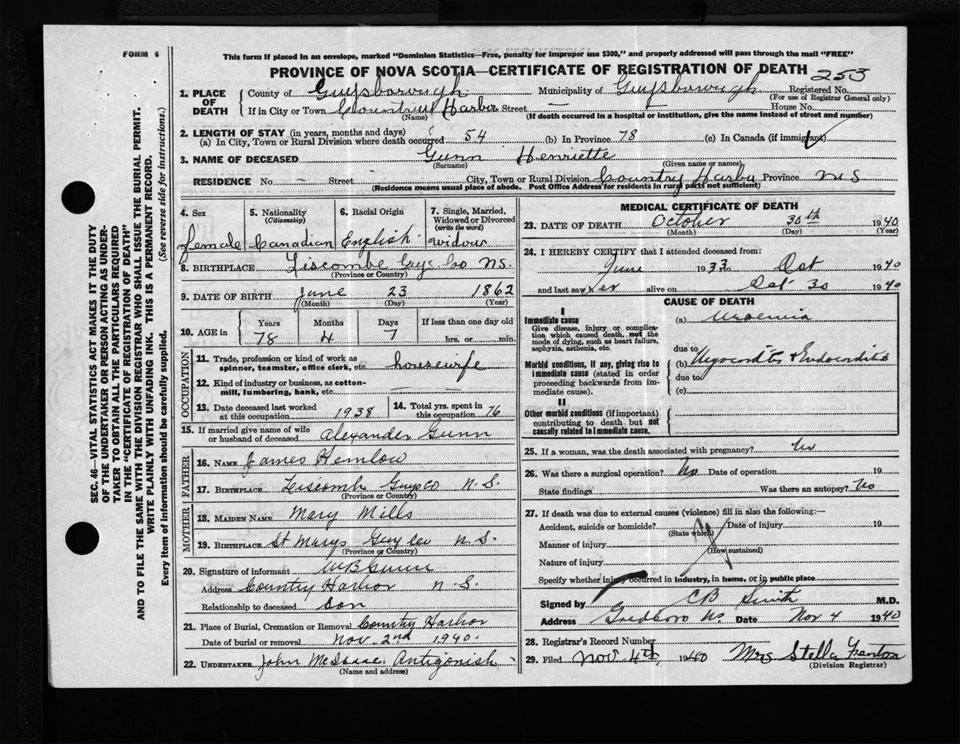 FORM 6
This form if placed in an envelope, marked "Dominion Statistics—Free, penalty for improper use $300," and properly addressed will pass through the mail "FREE"
PROVINCE OF NOVA SCOTIA—CERTIFICATE OF REGISTRATION OF DEATH 253
1. PLACE OF DEATH
County of Guysborough Municipality of Guysborough Registered No.
(For use of Registrar General only)
If in City or Town Country Harbor Street — House No. —
(Name) (If death occurred in a hospital or institution, give the name instead of street and number)
2. LENGTH OF STAY (in years, months and days)
(a) In City, Town or Rural Division where death occurred 54 (b) In Province 78 (c) In Canada (if immigrant)
3. NAME OF DECEASED Gunn Henriette
(Surname) (Given name or names)
RESIDENCE No. — Street City, Town or Rural Division Country Harbor Province N S
(Residence means usual place of abode. Post Office Address for residents in rural parts not sufficient)
4. Sex 5. Nationality (Citizenship) 6. Racial Origin 7. Single, Married, Widowed or Divorced (write the word)
female Canadian English widow
8. BIRTHPLACE Liscombe Guys Co N.S.
(Province or Country)
9. DATE OF BIRTH June 23 1862
(Month) (Day) (Year)
10. AGE in Years Months Days If less than one day old
78 4 7 hrs. or min.
OCCUPATION
11. Trade, profession or kind of work as spinner, teamster, office clerk, etc. housewife
12. Kind of industry or business, as cotton-mill, lumbering, bank, etc.
13. Date deceased last worked at this occupation 1938 14. Total yrs. spent in this occupation 76
15. If married give name of wife or husband of deceased Alexander Gunn
FATHER
16. NAME James Hemlow
17. BIRTHPLACE Liscomb Guys Co N. S.
(Province or Country)
MOTHER
18. MAIDEN NAME Mary Mills
19. BIRTHPLACE St Marys Guy N. S.
(Province or Country)
20. Signature of informant W B Gunn
Address Country Harbor N. S.
Relationship to deceased Son
21. Place of Burial, Cremation or Removal Country Harbor
Date of burial or removal Nov. 2nd 1940.
22. UNDERTAKER John McIsaac Antigonish
(Name and address)
MEDICAL CERTIFICATE OF DEATH
23. DATE OF DEATH October 30th 1940
(Month) (Day) (Year)
24. I HEREBY CERTIFY that I attended deceased from:
June 1933 to Oct 1940
and last saw her alive on Oct 30 1940
CAUSE OF DEATH
I
Immediate cause (a) Uraemia
Give disease, injury or complication which caused death, not the mode of dying, such as heart failure, asphyxia, asthenia, etc.
due to
Morbid conditions, if any, giving rise to immediate cause (stated in order proceeding backwards from immediate cause).
(b) Myocarditis & Endocarditis
due to
(c)
II
Other morbid conditions (if important) contributing to death but not causally related to immediate cause.
25. If a woman, was the death associated with pregnancy? No
26. Was there a surgical operation? No Date of operation 19
State findings Was there an autopsy? No
27. If death was due to external causes (violence) fill in also the following:—
Accident, suicide or homicide? Date of injury 19
(State which)
Manner of injury
(How sustained)
Nature of injury
Specify whether injury occurred in industry, in home, or in public place
Signed by C B Smith M.D.
Address Goldboro NS Date Nov 4 1940
28. Registrar's Record Number
29. Filed Nov. 4th, 1940 Mrs Stella
(Division Registrar)
SEC. 46—VITAL STATISTICS ACT MAKES IT THE DUTY
OF THE UNDERTAKER OR PERSON ACTING AS UNDER-
TAKER TO OBTAIN ALL THE PARTICULARS REQUIRED
IN THE "CERTIFICATE OF REGISTRATION OF DEATH"
AND TO FILE THE SAME WITH THE DIVISION REGISTRAR WHO SHALL ISSUE THE BURIAL PERMIT.
WRITE PLAINLY WITH UNFADING INK. THIS IS A PERMANENT RECORD.
Every item of information should be carefully supplied. (See reverse side for instructions.)